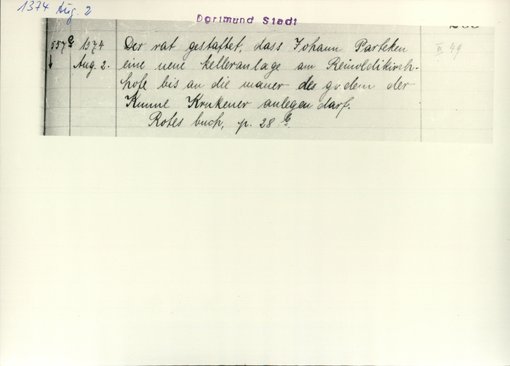 1374 Aug. 2
Dortmund Stadt
1374 Der rat gestattet, dass Johann Parteken
Aug. 2. eine neue kelleranlage am Reinoldikirch-
hofe bis an die mauer des godem der
Kunne Krukener anlegen darf.
Rotes buch, p. 28